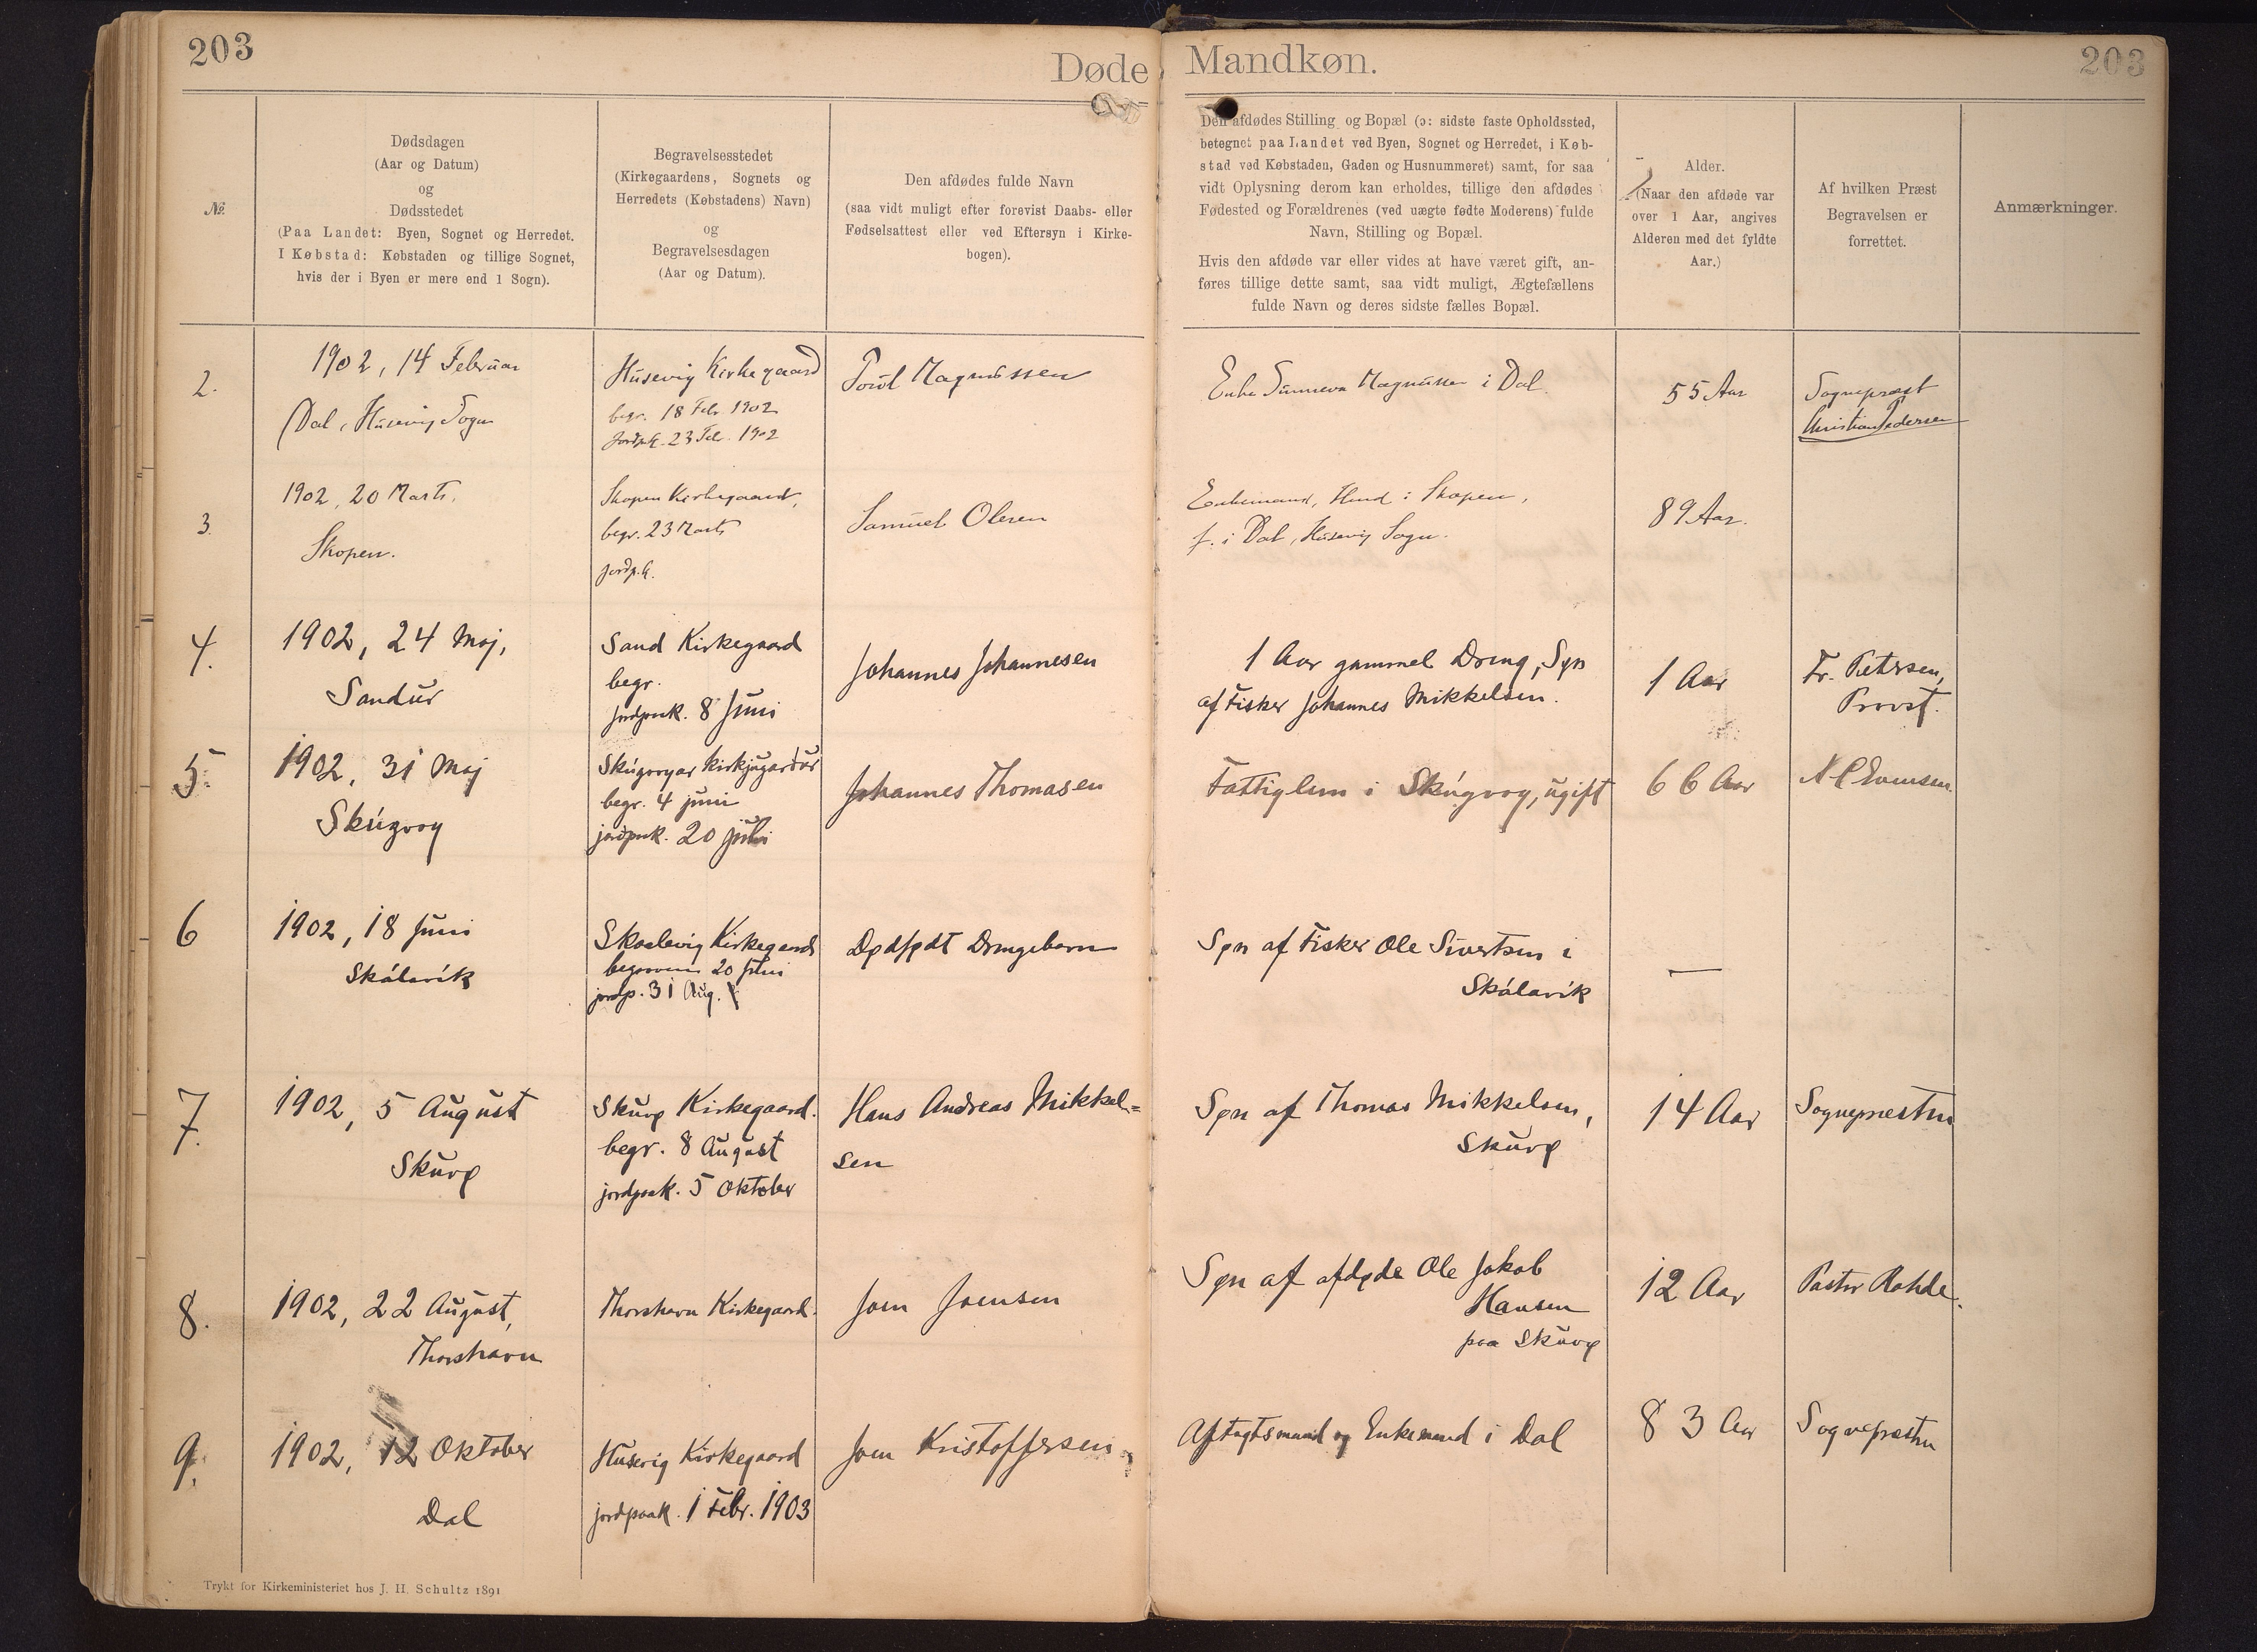 203
Døde Mandkøn.
203
№.
Dødsdagen
(Aar og Datum)
og
Dødsstedet
(Paa Landet: Byen, Sognet og Herredet.
I Købstad: Købstaden og tillige Sognet,
hvis der i Byen er mere end 1 Sogn).
Begravelsesstedet
(Kirkegaardens, Sognets og
Herredets (Købstadens) Navn)
og
Begravelsesdagen
(Aar og Datum).
Den afdødes fulde Navn
(saa vidt muligt efter forevist Daabs- eller
Fødselsattest eller ved Eftersyn i Kirke-
bogen).
Den afdødes Stilling og Bopæl (ɔ: sidste faste Opholdssted,
betegnet paa Landet ved Byen, Sognet og Herredet, i Køb-
stad ved Købstaden, Gaden og Husnummeret) samt, for saa
vidt Oplysning derom kan erholdes, tillige den afdødes
Fødested og Forældrenes (ved uægte fødte Moderens) fulde
Navn, Stilling og Bopæl.
Hvis den afdøde var eller vides at have været gift, an-
føres tillige dette samt, saa vidt muligt, Ægtefællens
fulde Navn og deres sidste fælles Bopæl.
Alder.
(Naar den afdøde var
over 1 Aar, angives
Alderen med det fyldte
Aar.)
Af hvilken Præst
Begravelsen er
forrettet.
Anmærkninger.
2.
1902, 14 Februar
Dal, Húsevig Sogn
Húsevig Kirkegaard
begr. 18 Febr. 1902
Jordp.k. 23 Feb. 1902
Poul Magnussen
Enke Sunneva Magnussen i Dal.
55 Aar
Sognepræst
Christian Pedersen
3.
1902, 20 Marts.
Skopen.
Skopen Kirkegaard,
begr. 23 Marts
jordp.k.
Samuel Olesen
Enkemand, i Skopen,
f. i Dal, Húsevig Sogn.
89 Aar.
4.
1902, 24 Maj,
Sandur
Sand Kirkegaard
begr.
jordpaak. 8 Juni
Johannes Johannesen
1 Aar gammel Dreng, Søn
af Fisker Johannes Mikkelsen.
1 Aar
Fr. Petersen,
Provst.
5.
1902, 31 Maj
Skúgvoy
Skúgvoyar kirkjugarður
begr. 4 juni
jordpaak. 20 juli
Johannes Thomasen
Fattiglem i Skúgvoy, ugift
66 Aar
N C Evensen.
6
1902, 18 Juni
Skálavík
Skaalevig Kirkegaard
begraven 20 Juni
jordp. 31 Aug.
Dødfødt Drengebarn
Søn af Fisker Ole Sivertsen i
Skálavík
—
7.
1902, 5 August
Skuvø
Skuvø Kirkegaard.
begr. 8 August
jordpaak. 5 Oktober
Hans Andreas Mikkel=
sen
Søn af Thomas Mikkelsen,
Skuvø
14 Aar
Sognepræsten
8.
1902, 22 August,
Thorshavn
Thorshavn Kirkegaard.
Joen Joensen
Søn af afdøde Ole Jakob
Hansen
paa Skuvø
12 Aar
Pastor Rohde.
9.
1902, 12 Oktober
Dal
Husevig Kirkegaard
jordpaak. 1 Febr. 1903
Joen Kristoffersen
Aftægtsmand og Enkemand i Dal
83 Aar
Sognepræsten
Trykt for Kirkeministeriet hos J. H. Schultz 1891